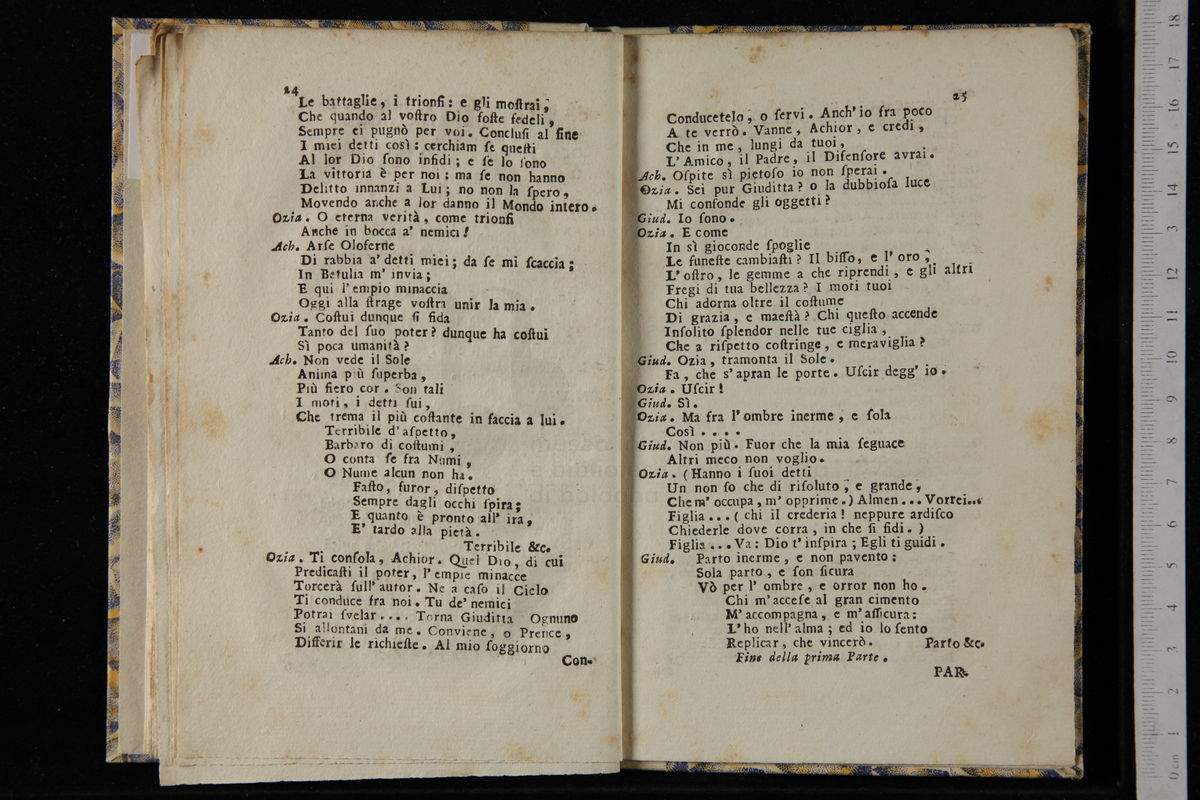 24
Le battaglie, i trionfi: e gli moſtrai,
Che quando al voſtro Dio foſte fedeli,
Sempre ei pugnò per voi. Concluſi al fine
I miei detti così: cerchiam ſe queſti
Al lor Dio ſono infidi; e ſe lo ſono
La vittoria è per noi: ma ſe non hanno
Delitto innanzi a Lui; no non la ſpero,
Movendo anche a lor danno il Mondo intero.
Ozia. O eterna verità, come trionfi
Anche in bocca a' nemici!
Ach. Arſe Oloferne
Di rabbia a' detti miei; da ſe mi ſcaccia;
In Betulia m' invia;
E qui l'empio minaccia
Oggi alla ſtrage voſtra unir la mia.
Ozia. Coſtui dunque ſi fida
Tanto del ſuo poter? dunque ha coſtui
Sì poca umanità?
Ach. Non vede il Sole
Anima più ſuperba,
Più fiero cor. Son tali
I moti, i detti ſui,
Che trema il più coſtante in faccia a lui.
Terribile d'aſpetto,
Barbaro di coſtumi,
O conta ſe fra Numi,
O Nume alcun non ha.
Faſto, furor, diſpetto
Sempre dagli occhi ſpira;
E quanto è pronto all' ira,
E' tardo alla pietà.
Terribile &c.
Ozia. Ti conſola, Achior. Quel Dio, di cui
Predicaſti il poter, l'empie minacce
Torcerà ſull' autor. Ne a caſo il Cielo
Ti conduce fra noi. Tu de' nemici
Potrai ſvelar.... Torna Giuditta Ognuno
Si allontani da me. Conviene, o Prence,
Differir le richieſte. Al mio ſoggiorno
Con-
25
Conducetelo, o ſervi. Anch' io fra poco
A te verrò. Vanne, Achior, e credi,
Che in me, lungi da tuoi,
L'Amico, il Padre, il Difenſore avrai.
Ach. Oſpite sì pietoſo io non ſperai.
Ozia. Sei pur Giuditta? o la dubbioſa luce
Mi confonde gli oggetti?
Giud. Io ſono.
Ozia. E come
In sì gioconde ſpoglie
Le funeſte cambiaſti? Il biſſo, e l'oro,
L'oſtro, le gemme a che riprendi, e gli altri
Fregi di tua bellezza? I moti tuoi
Chi adorna oltre il coſtume
Di grazia, e maeſtà? Chi queſto accende
Inſolito ſplendor nelle tue ciglia,
Che a riſpetto coſtringe, e meraviglia?
Giud. Ozia, tramonta il Sole.
Fa, che s'apran le porte. Uſcir degg' io.
Ozia. Uſcir!
Giud. Sì.
Ozia. Ma fra l'ombre inerme, e ſola
Così....
Giud. Non più. Fuor che la mia ſeguace
Altri meco non voglio.
Ozia. (Hanno i ſuoi detti
Un non ſo che di riſoluto, e grande,
Che m' occupa, m' opprime.) Almen... Vorrei...
Figlia... (chi il crederia! neppure ardiſco
Chiederle dove corra, in che ſi fidi.)
Figlia... Va: Dio t'inſpira; Egli ti guidi.
Giud. Parto inerme, e non pavento:
Sola parto, e ſon ſicura
Vò per l' ombre, e orror non ho.
Chi m'acceſe al gran cimento
M'accompagna, e m'aſſicura:
L'ho nell'alma; ed io lo ſento
Replicar, che vincerò. Parto &c.
Fine della prima Parte.
PAR-